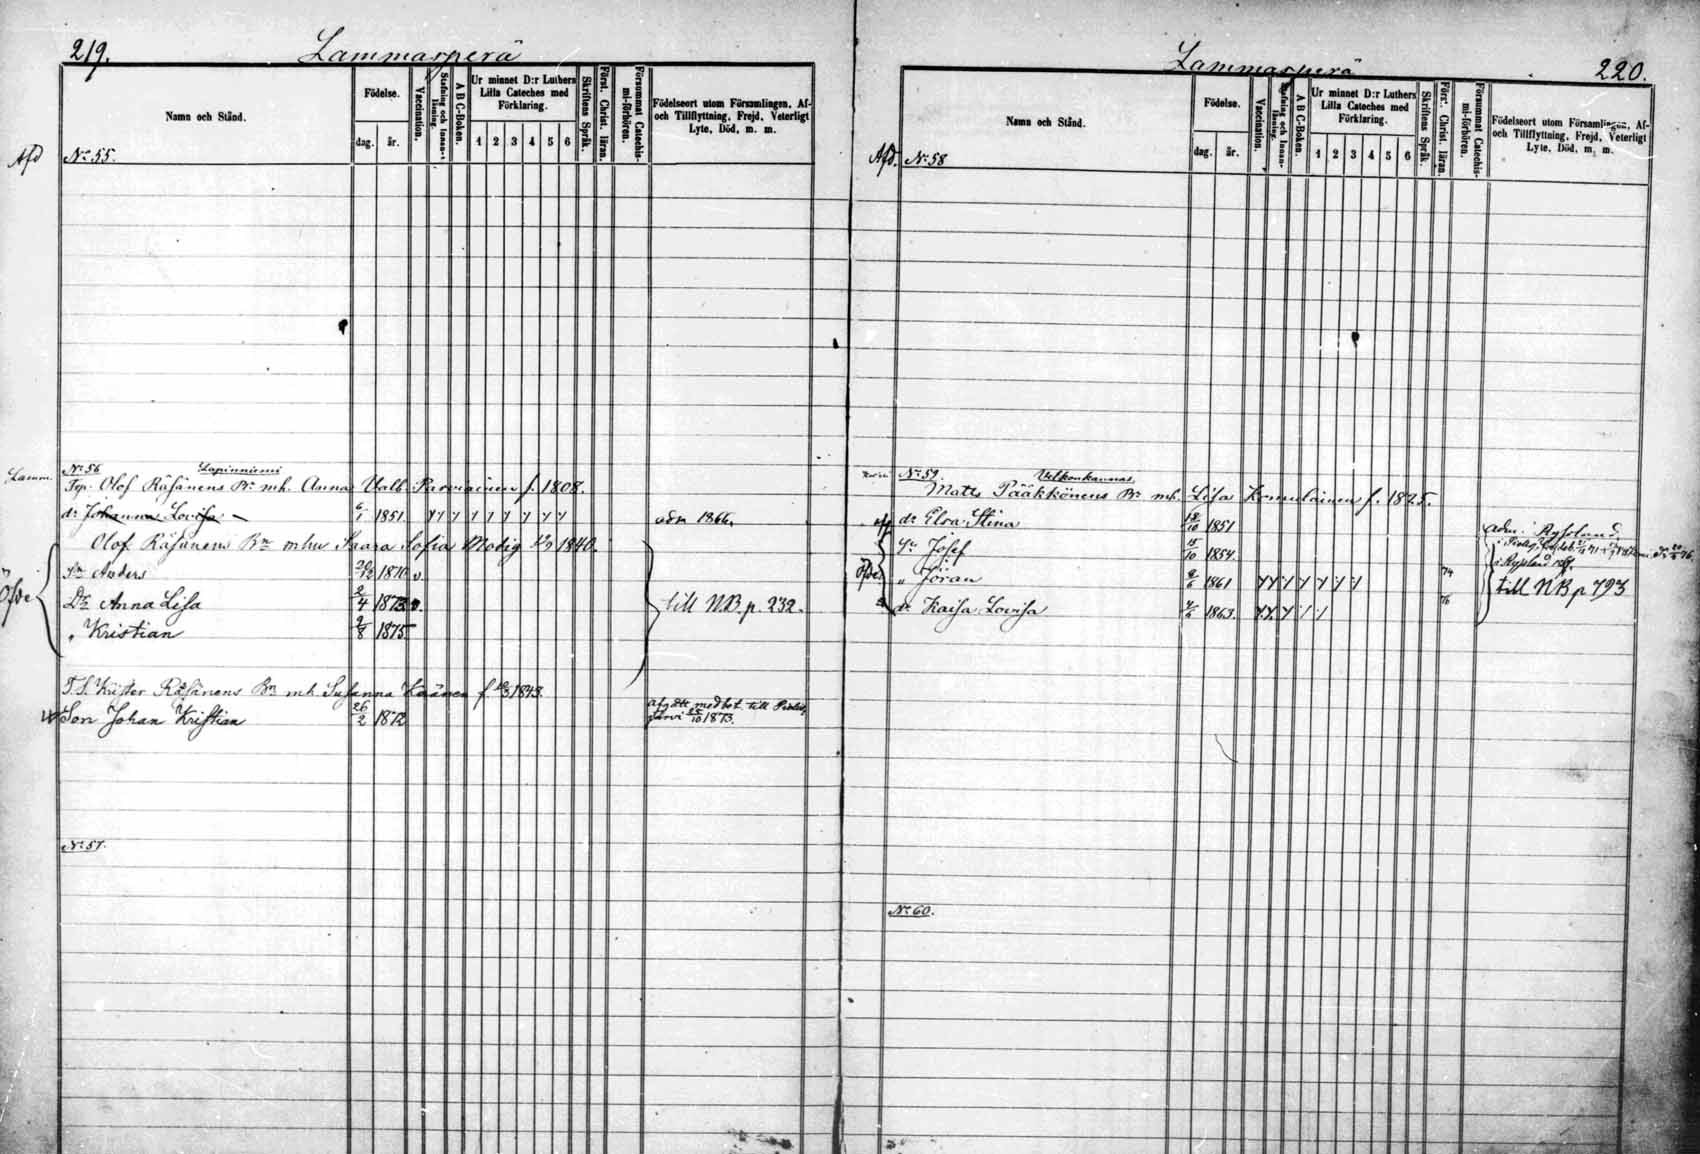 219.
Lammasperä
Namn och Stånd.
Födelse.
dag.
år.
Vaccination.
Stafning och Innan-läsning.
A B C-Boken.
Ur minnet D:r Luthers Lilla Cateches med Förklaring.
1 2 3 4 5 6
Skriftens Språk.
Först. Christ. läran.
Försummat Catechis-mi-förhören.
Födelseort utom Församlingen, Af-
och Tillflyttning, Frejd, Veterligt
Lyte, Död, m. m.
Afd
No 55.
Lamm.
No 56
Lapinniemi
Torp. Olof Räsänens Br mh. Anna Valb. Parviainen f. 1808.
dr Johanna Lovisa 6/1 1851. adm 1866.
Olof Räsänens Br mhu Saara Sofia Modig 1840.
Öfve
Sn Anders 1870 v
Dr Anna Lisa 2/4 1873 v. till N.B. p. 232.
" Kristian 2/8 1875
T.S. Krister Räsänens Br mh Susanna f 1843.
Son Johan Kristian 26/2 1872 afgått med bet. till
järvi 10 1873.
No 57.
Lammasperä
220.
Namn och Stånd.
Födelse.
dag.
år.
Vaccination.
Stafning och Innan-läsning.
A B C-Boken.
Ur minnet D:r Luthers Lilla Cateches med Förklaring.
1 2 3 4 5 6
Skriftens Språk.
Först. Christ. läran.
Försummat Catechis-mi-förhören.
Födelseort utom Församlingen, Af-
och Tillflyttning, Frejd, Veterligt
Lyte, Död, m. m.
Afd.
No 58
No 59.
Velkonkannas
Matts Pääkkönens Br mh. Lisa f. 1825.
dr Elva Stina 18/10 1851 adm. i Ryssland
Sn Josef 15/10 1854.
i Ryssland
Öfve
" Jöran 9/6 1861 74 till NB p 793
dr Kaisa Lovisa 1863. 76
No 60.